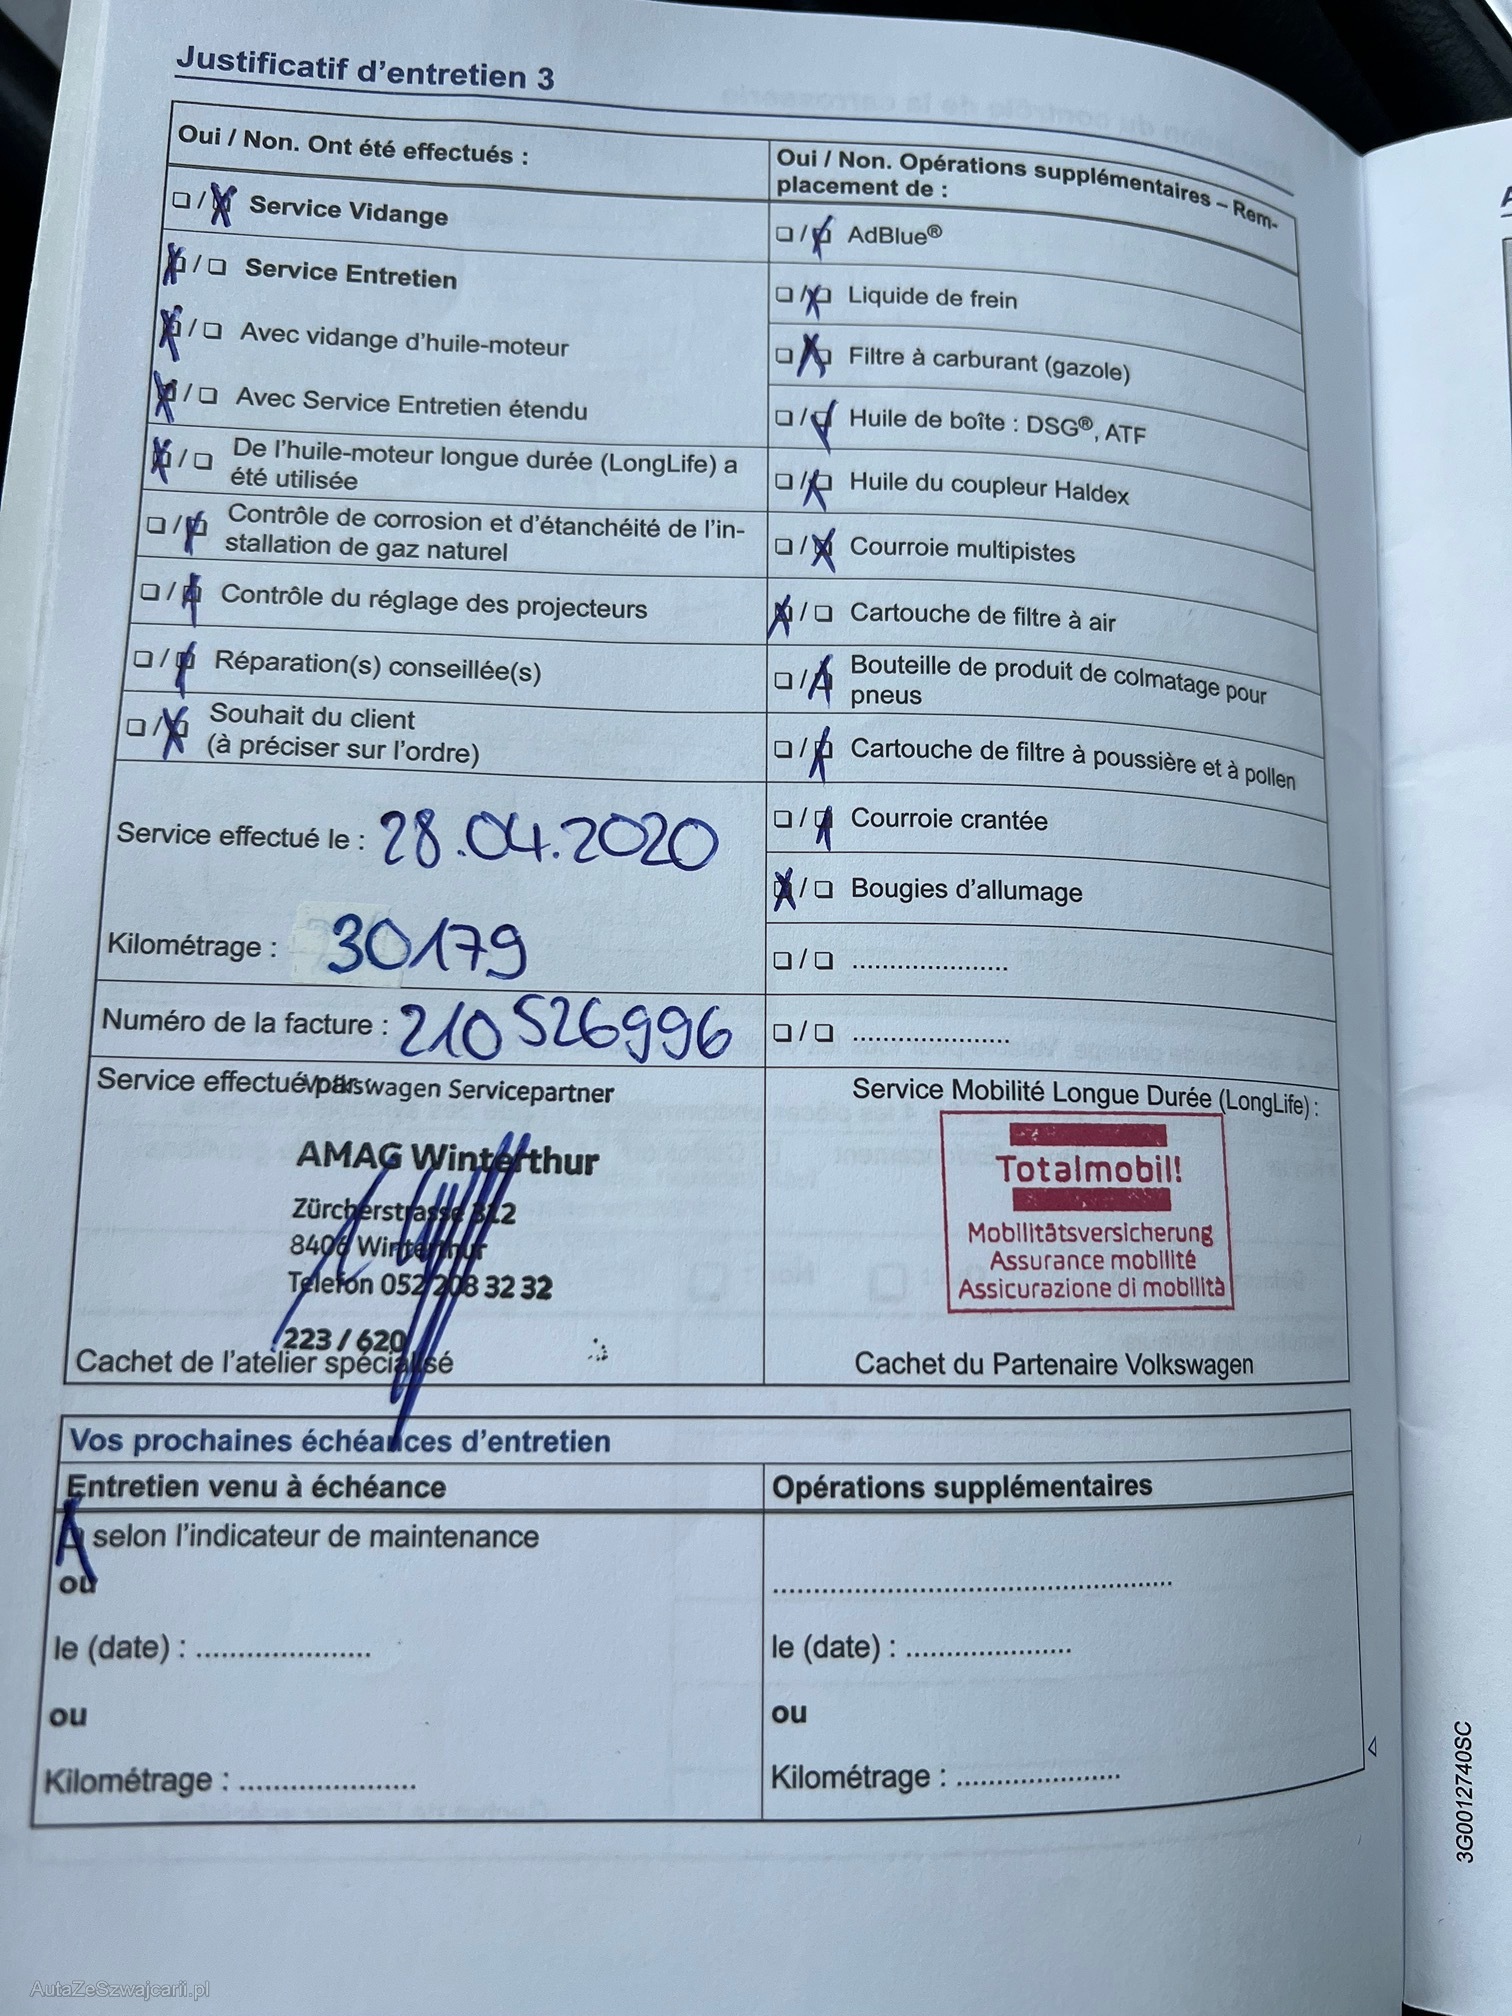 Justificatif d'entretien 3
Oui / Non. Ont été effectués :
❏ / ☒ Service Vidange
☒ / ❏ Service Entretien
☒ / ❏ Avec vidange d'huile-moteur
☒ / ❏ Avec Service Entretien étendu
☒ / ❏ De l'huile-moteur longue durée (LongLife) a
été utilisée
❏ / ☒ Contrôle de corrosion et d'étanchéité de l'in-
stallation de gaz naturel
❏ / ☒ Contrôle du réglage des projecteurs
❏ / ☒ Réparation(s) conseillée(s)
❏ / ☒ Souhait du client
(à préciser sur l'ordre)
Service effectué le : 28.04.2020
Kilométrage : 30179
Numéro de la facture : 210526996
Oui / Non. Opérations supplémentaires – Rem-
placement de :
❏ / ☒ AdBlue®
❏ / ☒ Liquide de frein
❏ / ☒ Filtre à carburant (gazole)
❏ / ☒ Huile de boîte : DSG®, ATF
❏ / ☒ Huile du coupleur Haldex
❏ / ☒ Courroie multipistes
☒ / ❏ Cartouche de filtre à air
❏ / ☒ Bouteille de produit de colmatage pour
pneus
❏ / ☒ Cartouche de filtre à poussière et à pollen
❏ / ☒ Courroie crantée
☒ / ❏ Bougies d'allumage
❏ / ❏ .....................
❏ / ❏ .....................
Service effectué par
Volkswagen Servicepartner
AMAG Winterthur
Zürcherstrasse 312
8406 Winterthur
Telefon 052 208 32 32
223 / 620
Cachet de l'atelier spécialisé
Service Mobilité Longue Durée (LongLife) :
Totalmobil!
Mobilitätsversicherung
Assurance mobilité
Assicurazione di mobilità
Cachet du Partenaire Volkswagen
Vos prochaines échéances d'entretien
Entretien venu à échéance
☒ selon l'indicateur de maintenance
ou
le (date) : .....................
ou
Kilométrage : .....................
Opérations supplémentaires
..................................................
le (date) : .....................
ou
Kilométrage : .....................
3G0012740SC
AutaZeSzwajcarii.pl